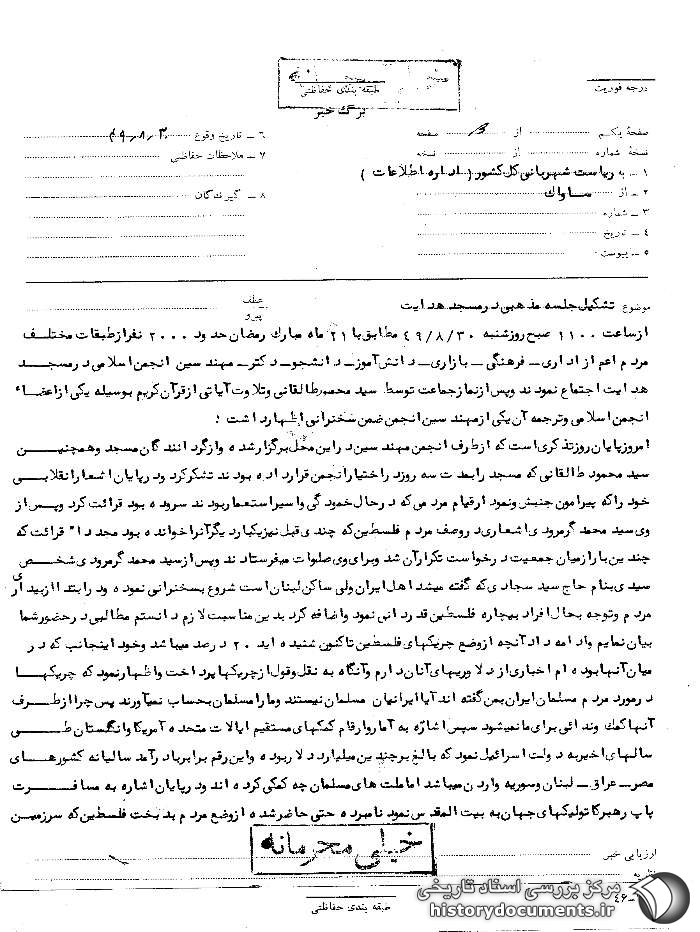 درجه فوریت
طبقه بندی حفاظتی
برگ خبر
صفحهٔ یکم از ۳ صفحه
نسخهٔ شماره از نسخه
۱ ـ به ریاست شهربانی کل کشور (اداره اطلاعات)
۲ ـ از ساواک
۳ ـ شماره
٤ ـ تاریخ
٥ ـ پیوست
٦ ـ تاریخ وقوع ۴۹/۸/۳۰
۷ ـ ملاحظات حفاظتی
۸ ـ گیرندگان
موضوع تشکیل جلسه مذهبی در مسجد هدایت
عطف
پیرو
از ساعت ۱۱۰۰ صبح روز شنبه ۴۹/۸/۳۰ مطابق با ۲۱ ماه مبارک رمضان حدود ۲۰۰۰ نفر از طبقات مختلف
مردم اعم از اداری ـ فرهنگی ـ بازاری ـ دانش آموز ـ دانشجو ـ دکتر ـ مهندسین انجمن اسلامی در مسجد
هدایت اجتماع نمودند و پس از نماز جماعت توسط سید محمود طالقانی و تلاوت آیاتی از قرآن کریم بوسیله یکی از اعضاء
انجمن اسلامی و ترجمه آن یکی از مهندسین انجمن ضمن سخنرانی اظهار داشت :
امروز پایان روز تذکری است که از طرف انجمن مهندسین در این محل برگزار شده و از گردانندگان مسجد و همچنین
سید محمود طالقانی که مسجد را بمدت سه روز در اختیار انجمن قرار داده بودند تشکر کرد و در پایان اشعار انقلابی
خود را که پیرامون جنبش و نمودار قیام مردمی که در حال خمودگی و اسیر استعمار بودند سروده بود قرائت کرد و پس از
وی سید محمد گرمرودی اشعاری در وصف مردم فلسطین که چندی قبل نیز یکبار دیگر آنرا خوانده بود مجدداً قرائت که
چندین بار از میان جمعیت درخواست تکرار آن شد و برای وی صلوات میفرستادند و پس از سید محمد گرمرودی شخص
سیدی بنام حاج سید سجادی که گفته میشد اهل ایران ولی ساکن لبنان است شروع بسخنرانی نموده و در ابتدا از بیداری
مردم و توجه بحال افراد بیچاره فلسطین قدردانی نمود و اضافه کرد بدین مناسبت لازم دانستم مطالبی در حضور شما
بیان نمایم و ادامه داد آنچه از وضع چریکهای فلسطین تاکنون شنیده اید ۲۰ درصد میباشد و خود اینجانب که در
میان آنها بوده ام اخباری از دلاوریهای آنان دارم و آنگاه به نقل وقول از چریکها پرداخت و اظهار نمود که چریکها
در مورد مردم مسلمان ایران بمن گفته اند آیا ایرانیان مسلمان نیستند و ما را مسلمان بحساب نمیآورند پس چرا از طرف
آنها کمک و ندائی برای ما نمیشود سپس اشاره به آمار و ارقام کمکهای مستقیم ایالات متحده آمریکا و انگلستان طی
سالهای اخیر به دولت اسرائیل نمود که بالغ بر چندین میلیارد دلار بوده و این رقم برابر با درآمد سالیانه کشورهای
مصر ـ عراق ـ لبنان و سوریه واردن میباشد اما ملت های مسلمان چه کمکی کرده اند و در پایان اشاره به مسافرت
پاپ رهبر کاتولیکهای جهان به بیت المقدس نمود نامبرده حتی حاضر شده از وضع مردم بدبخت فلسطین که سرزمین
خیلی محرمانه
ارزیابی خبر
طبقه بندی حفاظتی
مرکز بررسی اسناد تاریخی
historydocuments.ir